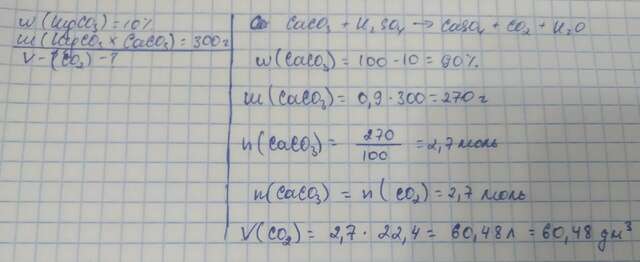 w(MgCO₃) = 10%
m(MgCO₃ × CaCO₃) = 300г
V - (CO₂) - ?
CaCO₃ + H₂SO₄ → CaSO₄ + CO₂ + H₂O
w(CaCO₃) = 100 - 10 = 90%
m(CaCO₃) = 0,9 · 300 = 270 г
n(CaCO₃) = 270/100 = 2,7 моль
n(CaCO₃) = n(CO₂) = 2,7 моль
V(CO₂) = 2,7 · 22,4 = 60,48 л = 60,48 дм³